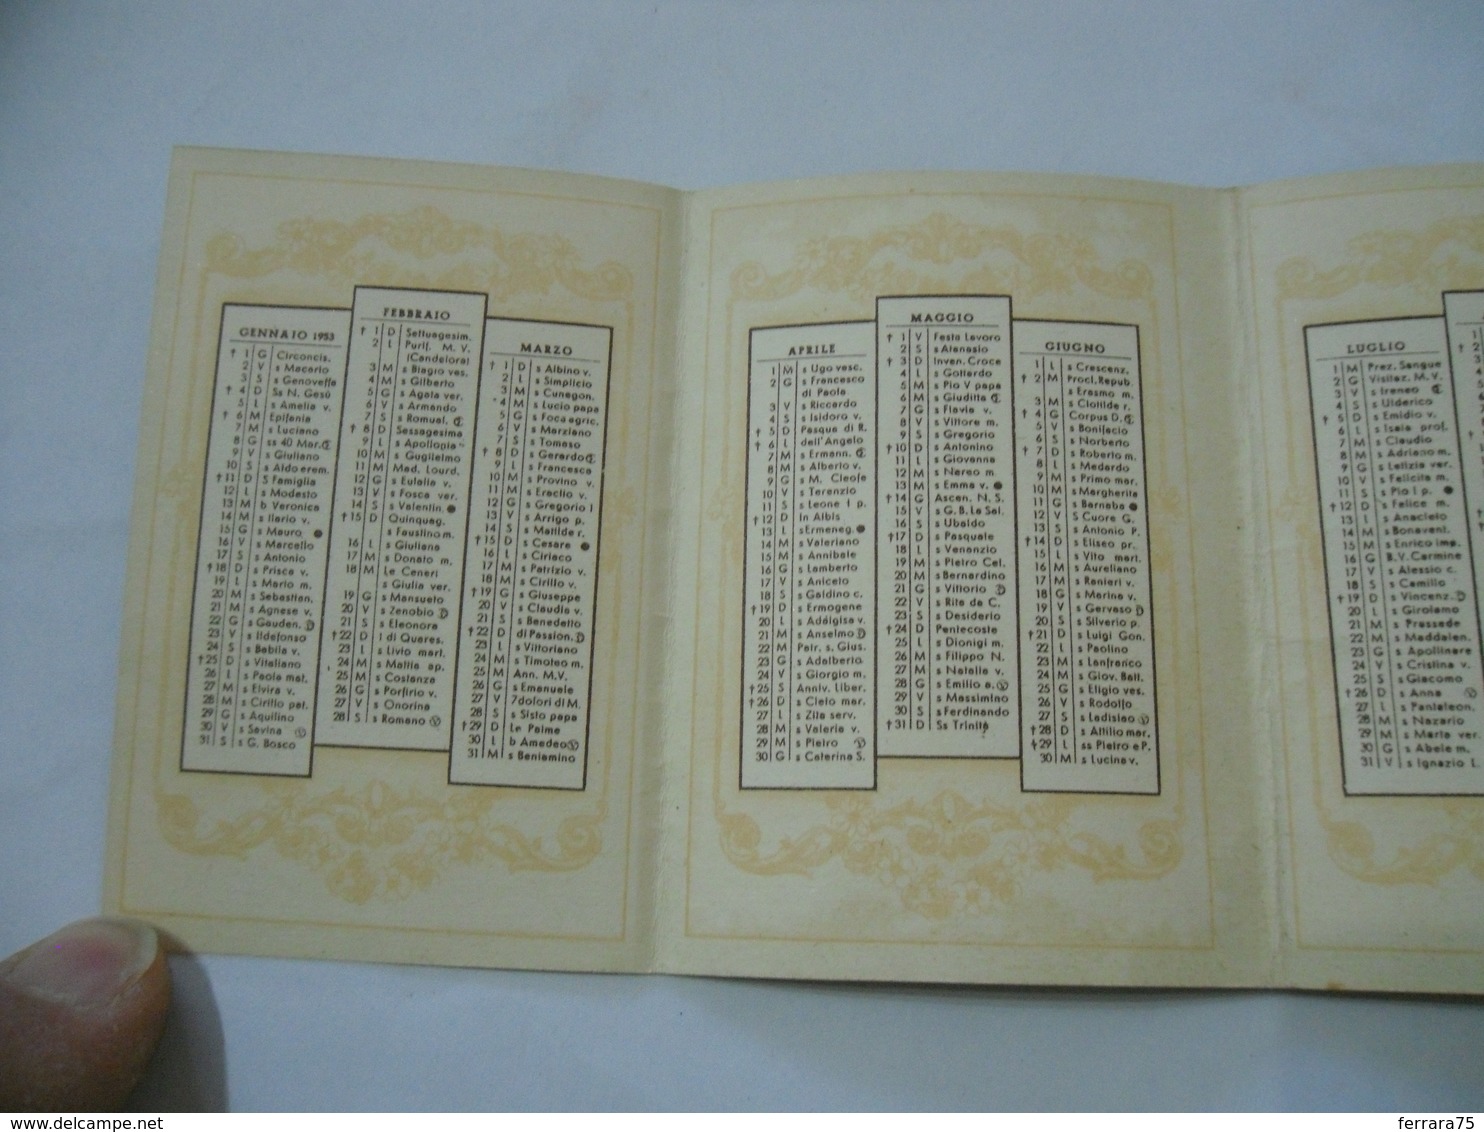 GENNAIO 1953
† 1 G Circoncis.
2 V s Macario
3 S s Genoveffa
† 4 D Ss N. Gesù
5 L s Amelia v.
† 6 M Epifania
7 M s Luciano
8 G ss 40 Mar. ☾
9 V s Giuliano
10 S s Aldo erem.
† 11 D S Famiglia
12 L s Modesto
13 M b Veronica
14 M s Ilario v.
15 G s Mauro ●
16 V s Marcello
17 S s Antonio
† 18 D s Prisca v.
19 L s Mario m.
20 M s Sebastian.
21 M s Agnese v.
22 G s Gauden. ☽
23 V s Ildefonso
24 S s Babila v.
† 25 D s Vitaliano
26 L s Paola mat.
27 M s Elvira v.
28 M s Cirillo pat.
29 G s Aquilino
30 V s Savina Ⓥ
31 S s G. Bosco
FEBBRAIO
† 1 D Settuagesim.
2 L Purif. M. V.
(Candelora)
3 M s Biagio ves.
4 M s Gilberto
5 G s Agata ver.
6 V s Armando
7 S s Romual. ☾
† 8 D Sessagesima
9 L s Apollonia
10 M s Guglielmo
11 M Mad. Lourd.
12 G s Eulalia v.
13 V s Fosca ver.
14 S s Valentin. ●
† 15 D Quinquag.
s Faustino m.
16 L s Giuliana
17 M s Donato m.
18 M Le Ceneri
s Giulia ver.
19 G s Mansueto
20 V s Zenobio ☽
21 S s Eleonora
† 22 D I di Quares.
23 L s Livio mart.
24 M s Mattia ap.
25 M s Costanza
26 G s Porfirio v.
27 V s Onorina
28 S s Romano Ⓥ
MARZO
† 1 D s Albino v.
2 L s Simplicio
3 M s Cunegon.
4 M s Lucio papa
5 G s Foca agric.
6 V s Marziano
7 S s Tomaso
† 8 D s Gerardo ☾
9 L s Francesca
10 M s Provino v.
11 M s Eraclio v.
12 G s Gregorio I
13 V s Arrigo p.
14 S s Matilde r.
† 15 D s Cesare ●
16 L s Ciriaco
17 M s Patrizio v.
18 M s Cirillo v.
† 19 G s Giuseppe
20 V s Claudia v.
21 S s Benedetto
† 22 D di Passion. ☽
23 L s Vittoriano
24 M s Timoteo m.
25 M Ann. M.V.
26 G s Emanuele
27 V 7 dolori di M.
28 S s Sisto papa
† 29 D Le Palme
30 L b Amedeo Ⓥ
31 M s Beniamino
APRILE
1 M s Ugo vesc.
2 G s Francesco
di Paola
3 V s Riccardo
4 S s Isidoro v.
† 5 D Pasqua di R.
† 6 L dell'Angelo
7 M s Ermann. ☾
8 M s Alberto v.
9 G s M. Cleofe
10 V s Terenzio
11 S s Leone I p.
† 12 D In Albis
13 L s Ermeneg. ●
14 M s Valeriano
15 M s Annibale
16 G s Lamberto
17 V s Aniceto
18 S s Galdino c.
† 19 D s Ermogene
20 L s Adalgisa v.
21 M s Anselmo ☽
22 M Patr. s. Gius.
23 G s Adalberto
24 V s Giorgio m.
† 25 S Anniv. Liber.
† 26 D s Cleto mar.
27 L s Zita serv.
28 M s Valeria v.
29 M s Pietro Ⓥ
30 G s Caterina S.
MAGGIO
† 1 V Festa Lavoro
2 S s Atanasio
† 3 D Inven. Croce
4 L s Gottardo
5 M s Pio V papa
6 M s Giuditta ☾
7 G s Flavia v.
8 V s Vittore m.
9 S s Gregorio
† 10 D s Antonino
11 L s Giovanna
12 M s Nereo m.
13 M s Emma v. ●
† 14 G Ascen. N. S.
15 V s G. B. La Sal.
16 S s Ubaldo
† 17 D s Pasquale
18 L s Venanzio
19 M s Pietro Cel.
20 M s Bernardino
21 G s Vittorio ☽
22 V s Rita da C.
23 S s Desiderio
† 24 D Pentecoste
25 L s Dionigi m.
26 M s Filippo N.
27 M s Natalia v.
28 G s Emilio a. Ⓥ
29 V s Massimino
30 S s Ferdinando
† 31 D Ss Trinità
GIUGNO
1 L s Crescenz.
† 2 M Procl. Repub.
s Erasmo m.
3 M s Clotilde r.
† 4 G Corpus D. ☾
5 V s Bonifacio
6 S s Norberto
† 7 D s Roberto m.
8 L s Medardo
9 M s Primo mar.
10 M s Margherita
11 G s Barnaba ●
12 V S Cuore G.
13 S s Antonio P.
† 14 D s Eliseo pr.
15 L s Vito mart.
16 M s Aureliano
17 M s Ranieri v.
18 G s Marina v.
19 V s Gervaso ☽
20 S s Silverio p.
† 21 D s Luigi Gon.
22 L s Paolino
23 M s Lanfranco
24 M s Giov. Batt.
25 G s Eligio ves.
26 V s Rodolfo
27 S s Ladislao Ⓥ
† 28 D s Attilio mar.
† 29 L ss Pietro e P.
30 M s Lucina v.
LUGLIO
1 M Prez. Sangue
2 G Visitaz. M. V.
3 V s Ireneo ☾
4 S s Ulderico
† 5 D s Emidio v.
6 L s Isaia prof.
7 M s Claudio
8 M s Adriano m.
9 G s Letizia ver.
10 V s Felicita m.
11 S s Pio I p. ●
† 12 D s Felice m.
13 L s Anacleto
14 M s Bonavent.
15 M s Enrico imp.
16 G B. V. Carmine
17 V s Alessio c.
18 S s Camillo
† 19 D s Vincenz. ☽
20 L s Girolamo
21 M s Prassede
22 M s Maddalen.
23 G s Apollinare
24 V s Cristina v.
25 S s Giacomo
† 26 D s Anna Ⓥ
27 L s Pantaleon.
28 M s Nazario
29 M s Marta ver.
30 G s Abele m.
31 V s Ignazio L.
www.delcampe.net
ferrara75